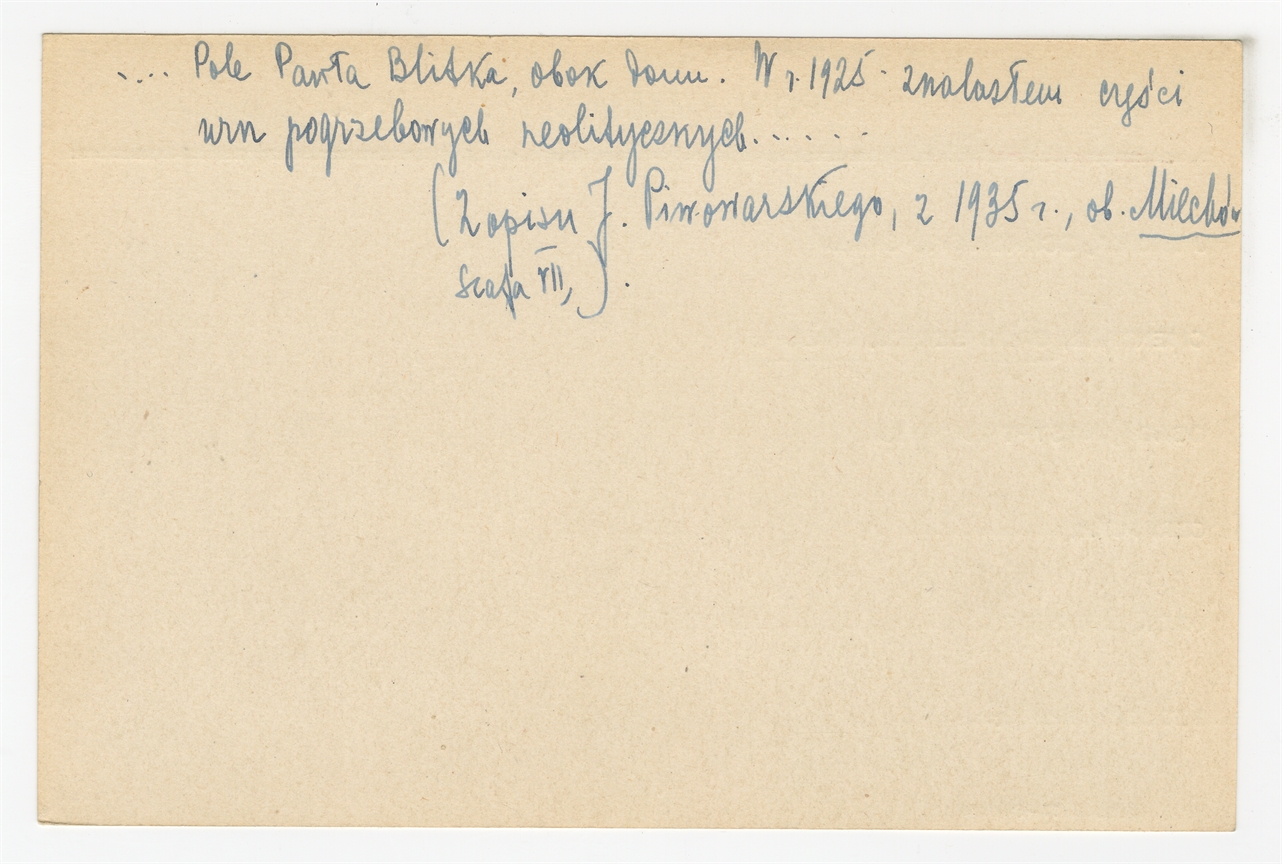 .... Pole Pawła Blitka, obok domu. W r. 1925 znalazłem części
urn pogrzebowych neolitycznych......
(Z opisu J. Piwowarskiego, z 1935 r., ob. Miechów
VII,).